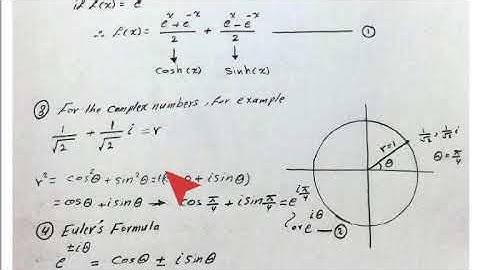 if f(x) = e^x
∴ f(x) = (e^x + e^-x)/2 + (e^x - e^-x)/2 ——— ①
cosh(x) sinh(x)
③ For the complex numbers, for example
1/√2 + 1/√2 i = r
r² = cos²θ + sin²θ = (θ + i sinθ)
= cosθ + i sinθ → cos π/4 + i sin π/4 = e^(iπ/4)
or e^(iθ) — ②
④ Euler's Formula
e^(±iθ) = cosθ ± i sinθ
r=1
θ
1/√2, 1/√2 i
θ = π/4